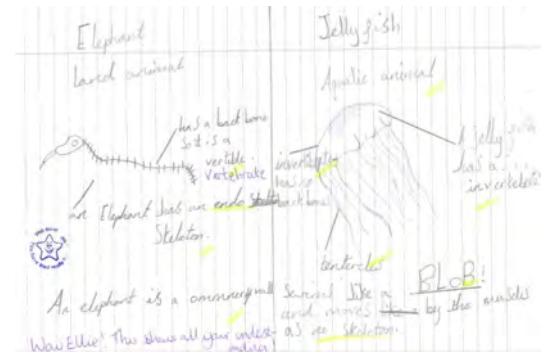 Elephant
Land animal
has a back bone
so it is a
vertible.
Vertebrate
an Elephant has an endo
Skeleton.
An elephant is a
Wow Ellie! This shows all your
Jelly fish
Aquatic animal
invertebrate
has no
back bone
A jelly fish
has a
invertebrate
tentercles
BLOB!
like a
and moves by the muscles
as no skeleton.